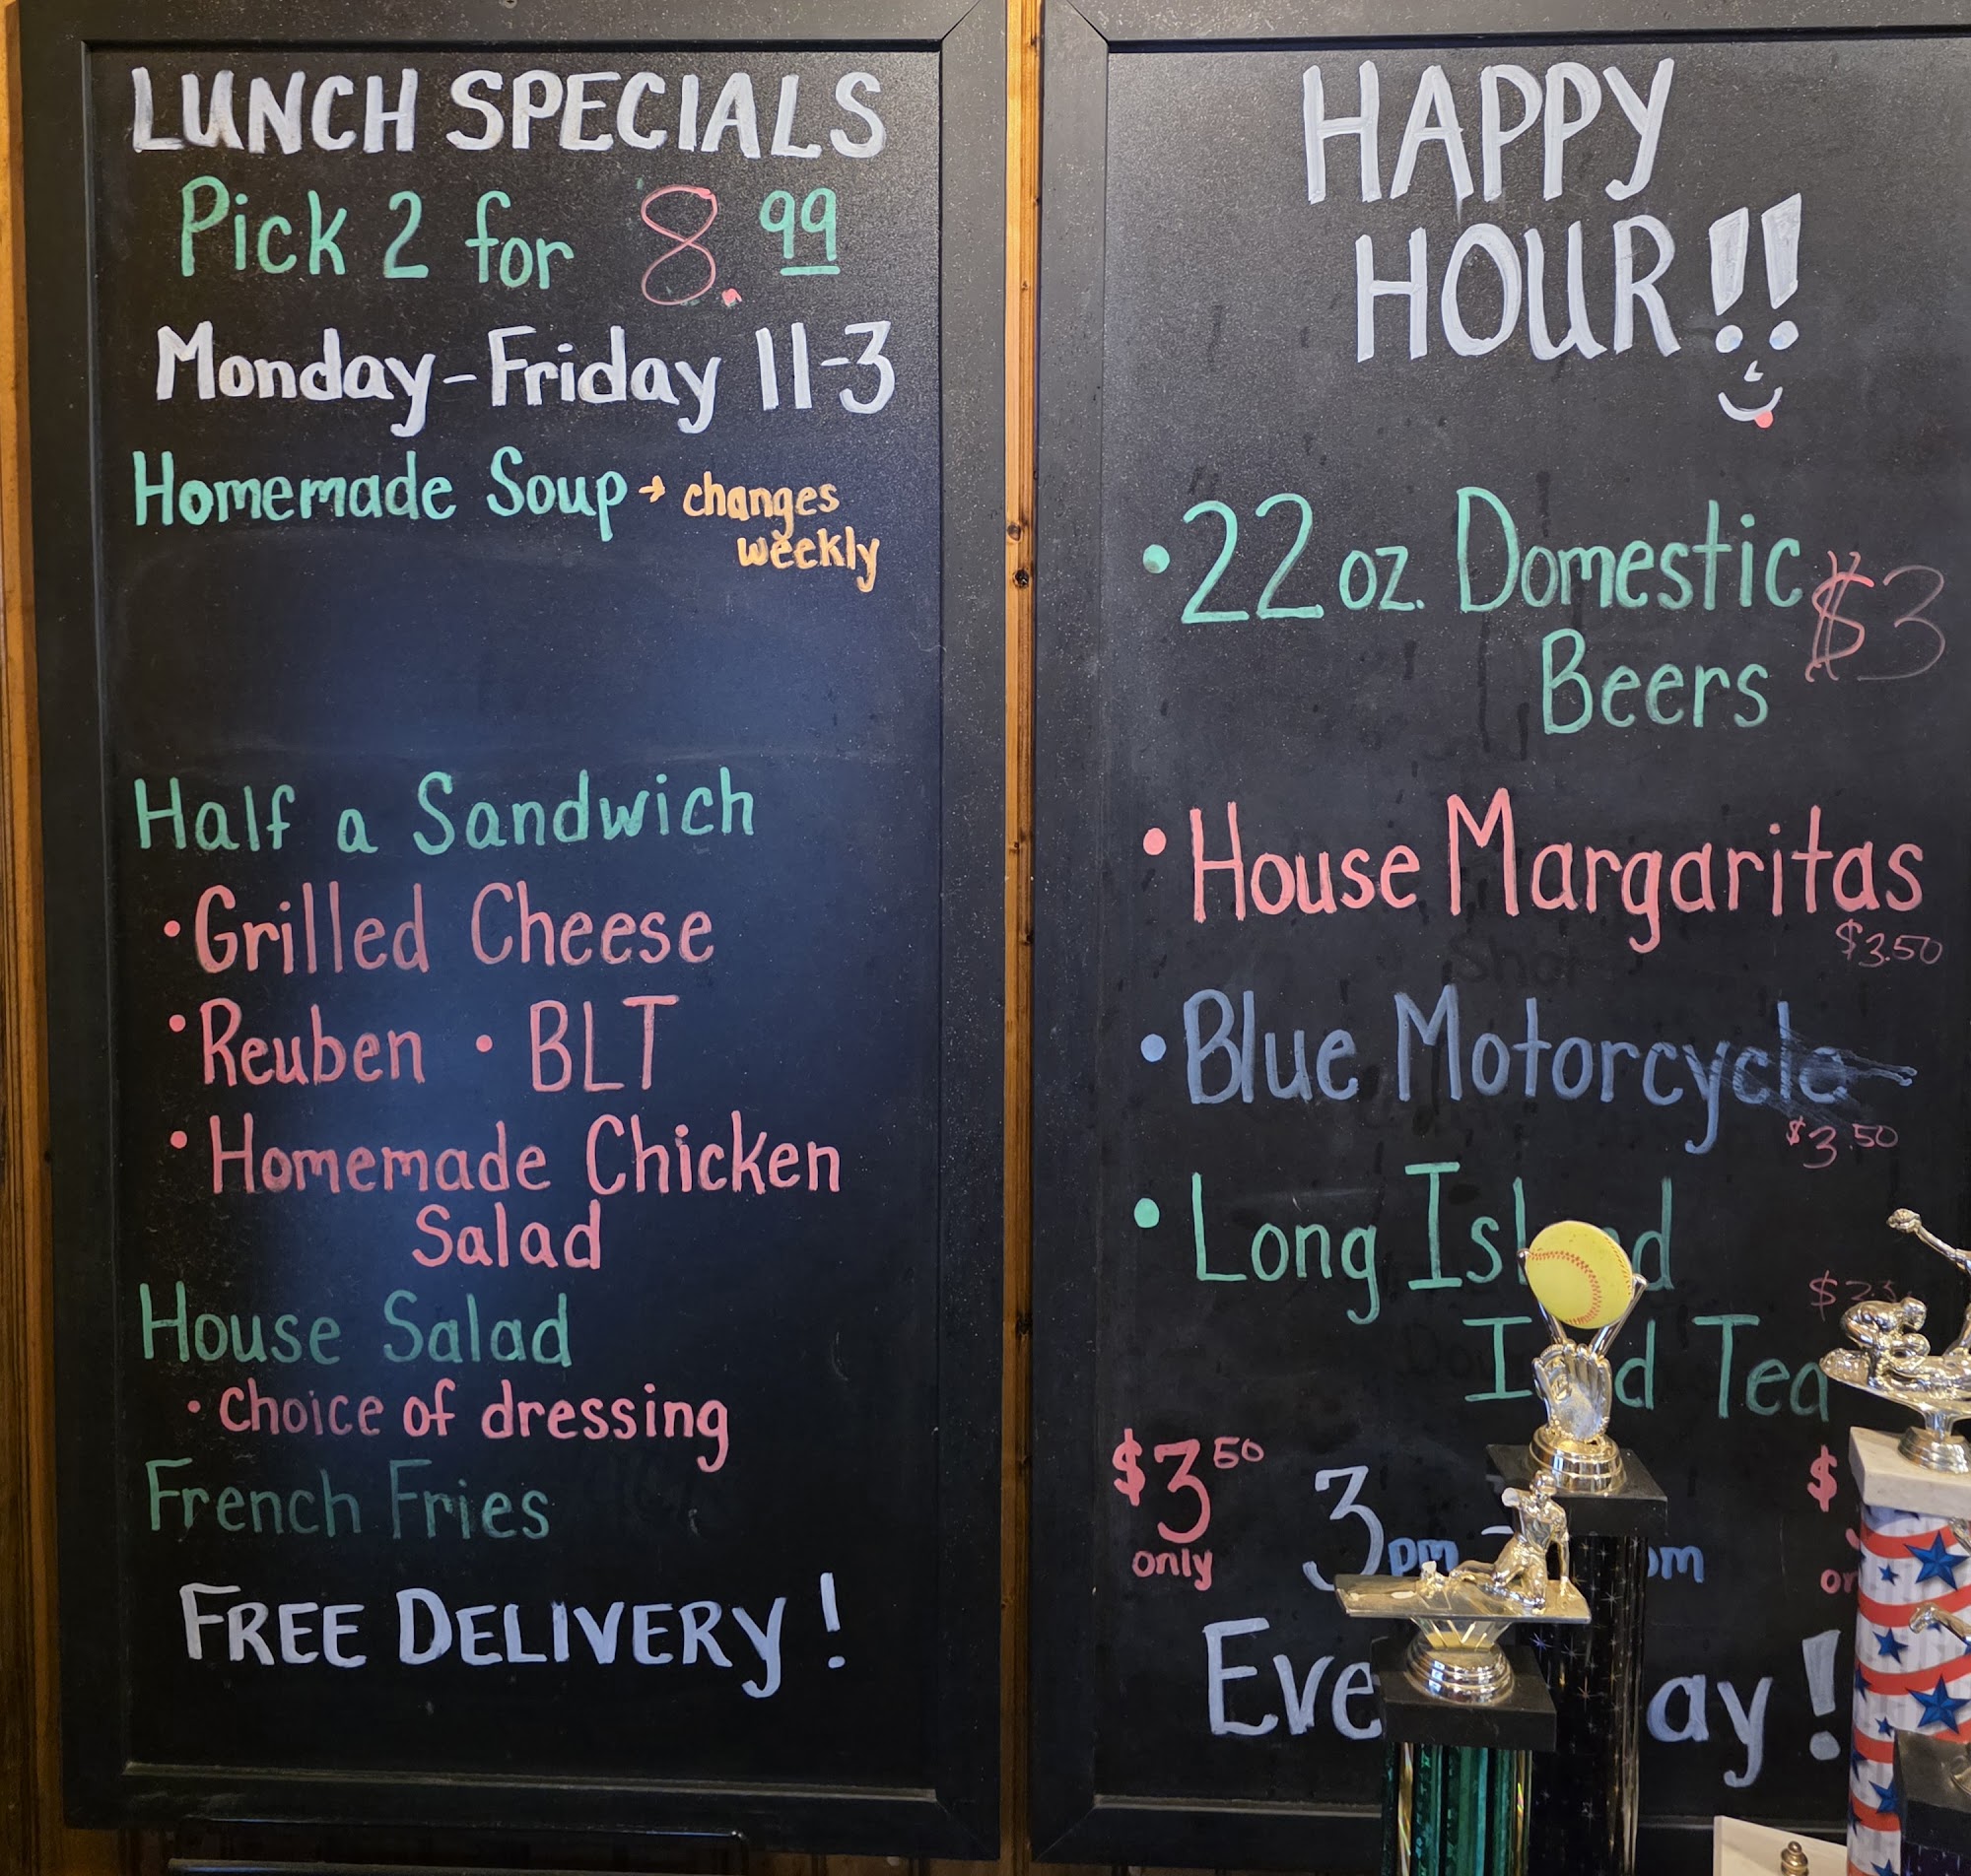 LUNCH SPECIALS
Pick 2 for 8.99
Monday-Friday 11-3
Homemade Soup → changes
weekly
Half a Sandwich
• Grilled Cheese
• Reuben • BLT
• Homemade Chicken
Salad
House Salad
• choice of dressing
French Fries
FREE DELIVERY!
HAPPY
HOUR!!
• 22 oz. Domestic $3
Beers
• House Margaritas
$3.50
• Blue Motorcycle
$3.50
• Long
Tea
$3.50
only
3pm -